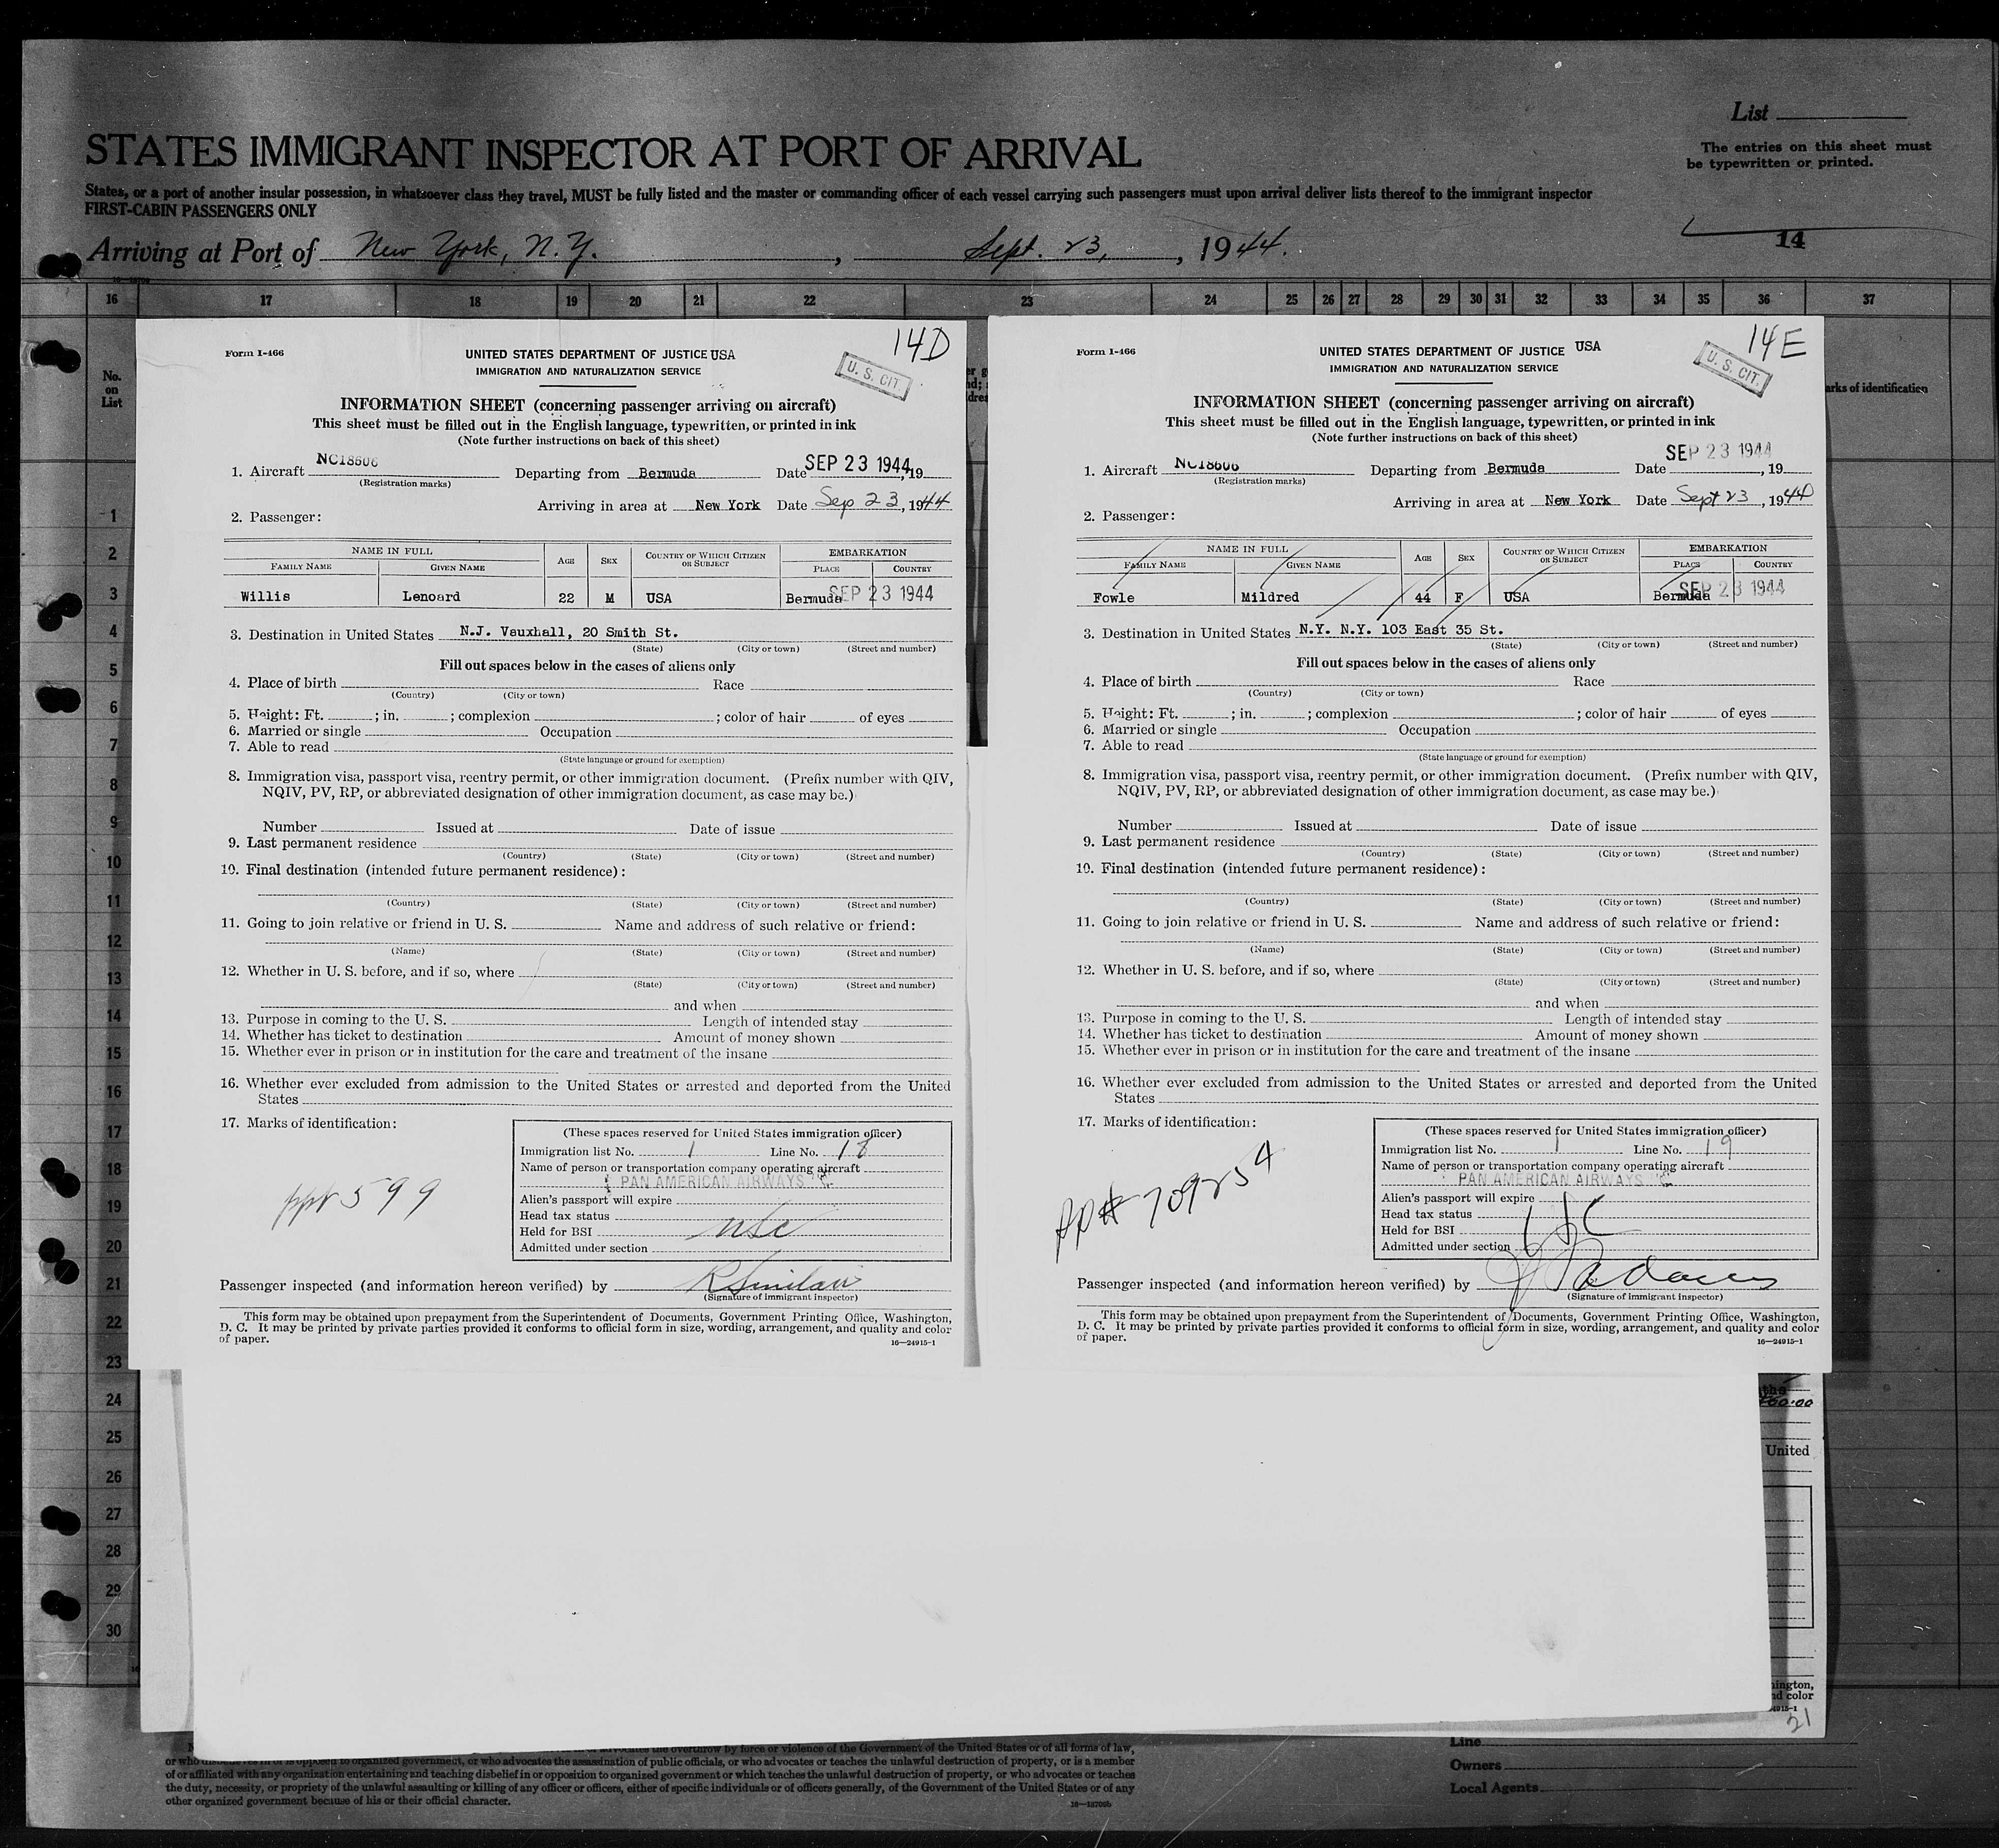 List
The entries on this sheet must
be typewritten or printed.
STATES IMMIGRANT INSPECTOR AT PORT OF ARRIVAL
States, or a port of another insular possession, in whatsoever class they travel, MUST be fully listed and the master or commanding officer of each vessel carrying such passengers must upon arrival deliver lists thereof to the immigrant inspector
FIRST-CABIN PASSENGERS ONLY
Arriving at Port of New York, N.Y. , Sept. 23, , 1944.
14
16 17 18 19 20 21 22 23 24 25 26 27 28 29 30 31 32 33 34 35 36 37
No.
on
List
arks of identification
1
2
3
4
5
6
7
8
9
10
11
12
13
14
15
16
17
18
19
20
21
22
23
24
25
26
27
28
29
30
14D
Form I-466
UNITED STATES DEPARTMENT OF JUSTICE USA
IMMIGRATION AND NATURALIZATION SERVICE
U. S. CIT.
INFORMATION SHEET (concerning passenger arriving on aircraft)
This sheet must be filled out in the English language, typewritten, or printed in ink
(Note further instructions on back of this sheet)
1. Aircraft NC18606 Departing from Bermuda Date SEP 23 1944, 19
(Registration marks)
Arriving in area at New York Date Sep 23, 1944
2. Passenger:
NAME IN FULL AGE SEX COUNTRY OF WHICH CITIZEN OR SUBJECT EMBARKATION
FAMILY NAME GIVEN NAME PLACE COUNTRY
Willis Lenoard 22 M USA Bermuda SEP 23 1944
3. Destination in United States N.J. Vauxhall, 20 Smith St.
(State) (City or town) (Street and number)
Fill out spaces below in the cases of aliens only
4. Place of birth Race
(Country) (City or town)
5. Height: Ft. ; in. ; complexion ; color of hair of eyes
6. Married or single Occupation
7. Able to read
(State language or ground for exemption)
8. Immigration visa, passport visa, reentry permit, or other immigration document. (Prefix number with QIV,
NQIV, PV, RP, or abbreviated designation of other immigration document, as case may be.)
Number Issued at Date of issue
9. Last permanent residence
(Country) (State) (City or town) (Street and number)
10. Final destination (intended future permanent residence):
(Country) (State) (City or town) (Street and number)
11. Going to join relative or friend in U. S. Name and address of such relative or friend:
(Name) (State) (City or town) (Street and number)
12. Whether in U. S. before, and if so, where
(State) (City or town) (Street and number)
and when
13. Purpose in coming to the U. S. Length of intended stay
14. Whether has ticket to destination Amount of money shown
15. Whether ever in prison or in institution for the care and treatment of the insane
16. Whether ever excluded from admission to the United States or arrested and deported from the United
States
17. Marks of identification:
ppt 599
(These spaces reserved for United States immigration officer)
Immigration list No. 1 Line No. 18
Name of person or transportation company operating aircraft
PAN AMERICAN AIRWAYS
Alien's passport will expire
Head tax status
Held for BSI
Admitted under section
usc
Passenger inspected (and information hereon verified) by
(Signature of immigrant inspector)
This form may be obtained upon prepayment from the Superintendent of Documents, Government Printing Office, Washington,
D. C. It may be printed by private parties provided it conforms to official form in size, wording, arrangement, and quality and color
of paper.
16—24915-1
14E
Form I-466
UNITED STATES DEPARTMENT OF JUSTICE USA
IMMIGRATION AND NATURALIZATION SERVICE
U. S. CIT.
INFORMATION SHEET (concerning passenger arriving on aircraft)
This sheet must be filled out in the English language, typewritten, or printed in ink
(Note further instructions on back of this sheet)
1. Aircraft NC18606 Departing from Bermuda Date SEP 23 1944, 19
(Registration marks)
Arriving in area at New York Date Sept 23, 1944
2. Passenger:
NAME IN FULL AGE SEX COUNTRY OF WHICH CITIZEN OR SUBJECT EMBARKATION
FAMILY NAME GIVEN NAME PLACE COUNTRY
Fowle Mildred 44 F USA Bermuda SEP 23 1944
3. Destination in United States N.Y. N.Y. 103 East 35 St.
(State) (City or town) (Street and number)
Fill out spaces below in the cases of aliens only
4. Place of birth Race
(Country) (City or town)
5. Height: Ft. ; in. ; complexion ; color of hair of eyes
6. Married or single Occupation
7. Able to read
(State language or ground for exemption)
8. Immigration visa, passport visa, reentry permit, or other immigration document. (Prefix number with QIV,
NQIV, PV, RP, or abbreviated designation of other immigration document, as case may be.)
Number Issued at Date of issue
9. Last permanent residence
(Country) (State) (City or town) (Street and number)
10. Final destination (intended future permanent residence):
(Country) (State) (City or town) (Street and number)
11. Going to join relative or friend in U. S. Name and address of such relative or friend:
(Name) (State) (City or town) (Street and number)
12. Whether in U. S. before, and if so, where
(State) (City or town) (Street and number)
and when
13. Purpose in coming to the U. S. Length of intended stay
14. Whether has ticket to destination Amount of money shown
15. Whether ever in prison or in institution for the care and treatment of the insane
16. Whether ever excluded from admission to the United States or arrested and deported from the United
States
17. Marks of identification:
pp# 709254
(These spaces reserved for United States immigration officer)
Immigration list No. 1 Line No. 19
Name of person or transportation company operating aircraft
PAN AMERICAN AIRWAYS
Alien's passport will expire
Head tax status
Held for BSI
Admitted under section
Passenger inspected (and information hereon verified) by
(Signature of immigrant inspector)
This form may be obtained upon prepayment from the Superintendent of Documents, Government Printing Office, Washington,
D. C. It may be printed by private parties provided it conforms to official form in size, wording, arrangement, and quality and color
of paper.
16—24915-1
United
ington,
nd color
21
advocates the overthrow by force or violence of the Government of the United States or of all forms of law,
or who is opposed to organized government, or who advocates the assassination of public officials, or who advocates or teaches the unlawful destruction of property, or is a member
of or affiliated with any organization entertaining and teaching disbelief in or opposition to organized government or which teaches the unlawful destruction of property, or who advocates or teaches
the duty, necessity, or propriety of the unlawful assaulting or killing of any officer or officers, either of specific individuals or of officers generally, of the Government of the United States or of any
other organized government because of his or their official character.
Line
Owners
Local Agents